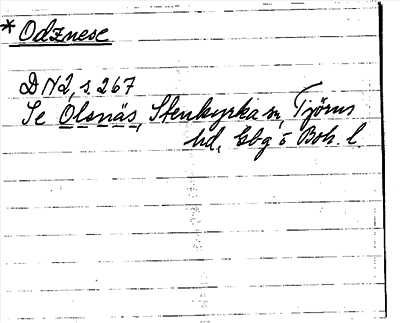 * Odznese
D N 2, s. 267
Se Olsnäs, Stenkyrka sn, Tjörns
hd, Gbg o Boh. l.